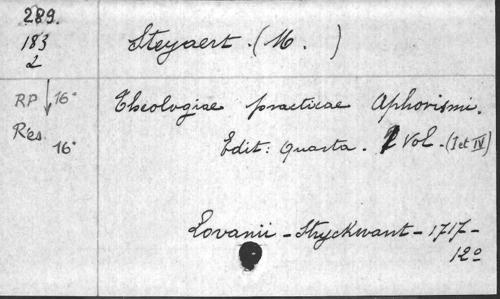 289.
183
2
Steyaert. (M. )
RP 16°
Rés. 16°
Theologiae practicae Aphorismi.
Edit: Quarta. 2 Vol. (I et IV)
Lovanii - Stryckwant - 1717 -
12°